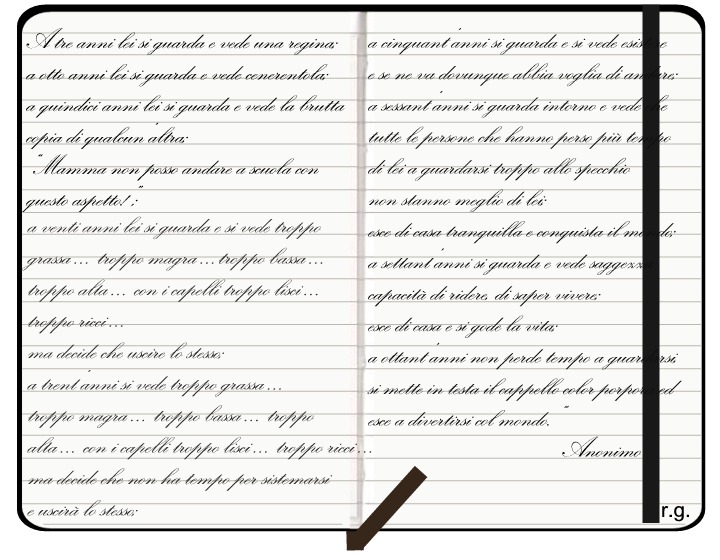 A tre anni lei si guarda e vede una regina;
a otto anni lei si guarda e vede cenerentola;
a quindici anni lei si guarda e vede la brutta
copia di qualcun'altra;
"Mamma non posso andare a scuola con
questo aspetto!";
a venti anni lei si guarda e si vede troppo
grassa... troppo magra... troppo bassa...
troppo alta... con i capelli troppo lisci...
troppo ricci...
ma decide che uscire lo stesso;
a trent'anni si vede troppo grassa...
troppo magra... troppo bassa... troppo
alta... con i capelli troppo lisci... troppo ricci...
ma decide che non ha tempo per sistemarsi
e uscirà lo stesso;
a cinquant'anni si guarda e si vede esistere
e se ne va dovunque abbia voglia di andare;
a sessant'anni si guarda intorno e vede che
tutte le persone che hanno perso più tempo
di lei a guardarsi troppo allo specchio
non stanno meglio di lei;
esce di casa tranquilla e conquista il mondo;
a settant'anni si guarda e vede saggezza
capacità di ridere, di saper vivere;
esce di casa e si gode la vita;
a ottant'anni non perde tempo a guardarsi,
si mette in testa il cappello color porpora ed
esce a divertirsi col mondo."
Anonimo
r.g.